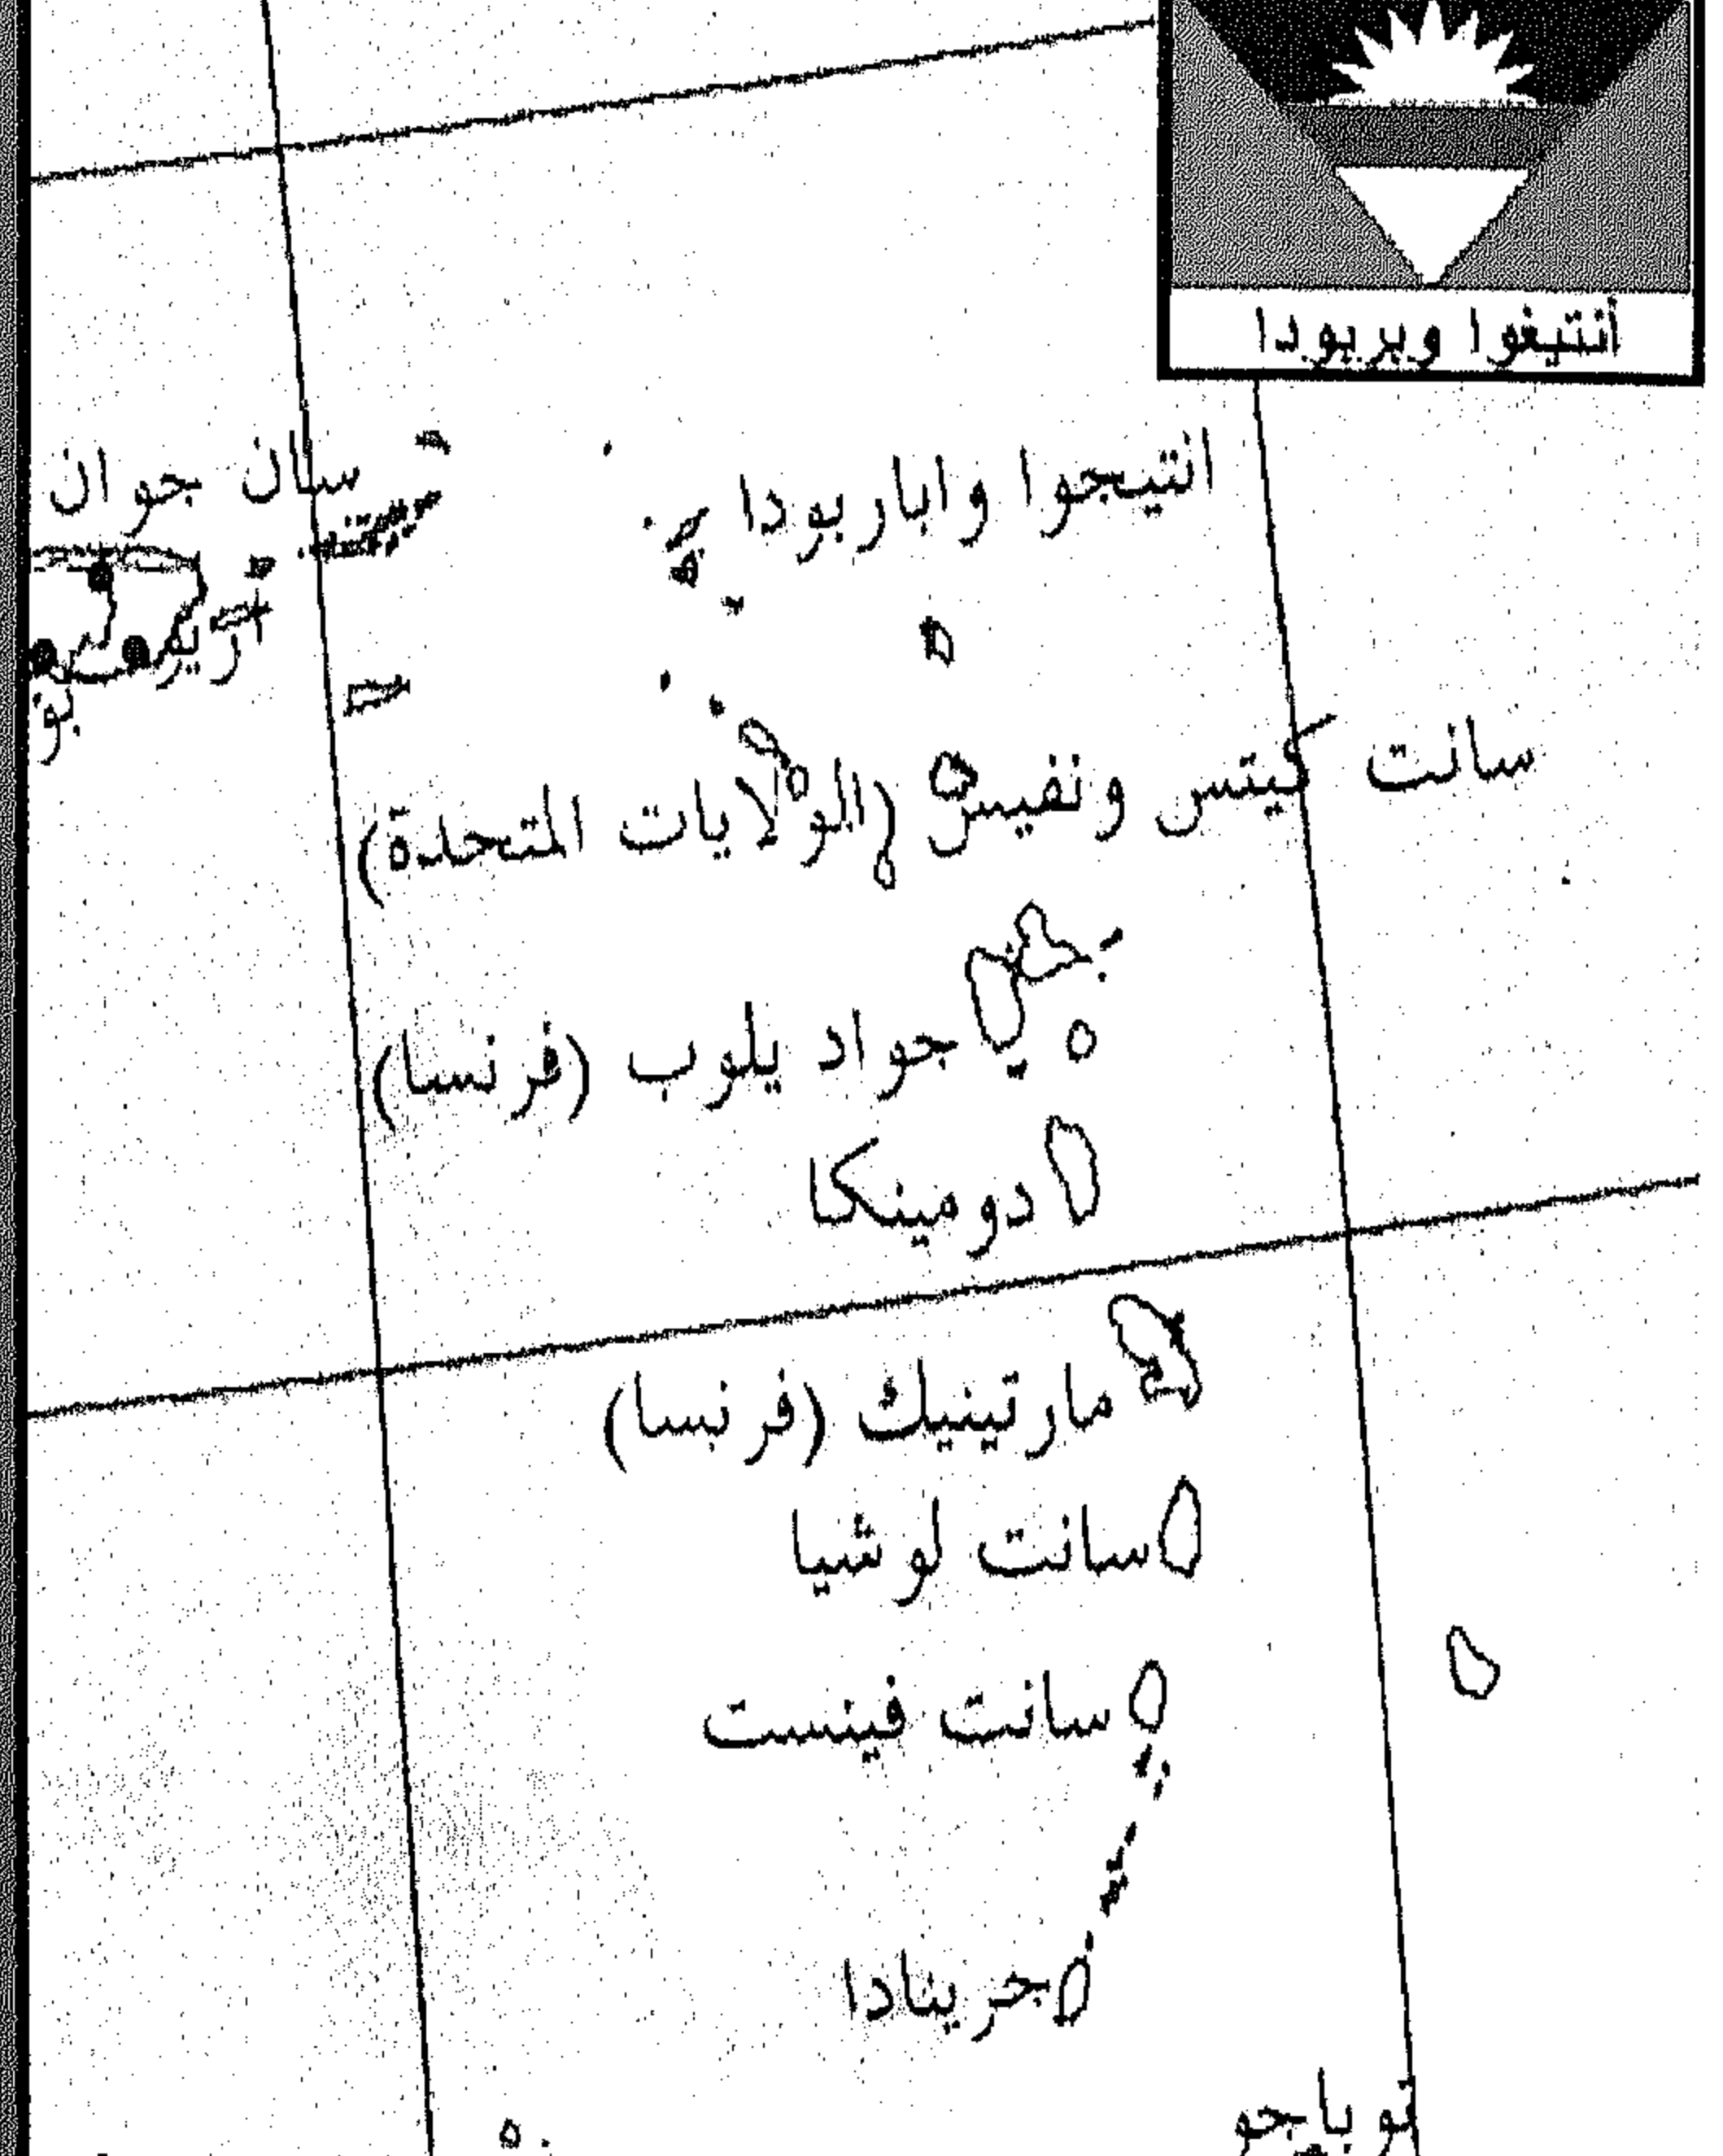 أنتيغوا وبربودا
سان جوان
انتيجوا واباربودا
سانت كيتس ونفيس (الولايات المتحدة)
جواد يلوب (فرنسا)
دومينكا
مارتينيك (فرنسا)
سانت لوشيا
سانت فينست
جرينادا
توباجو